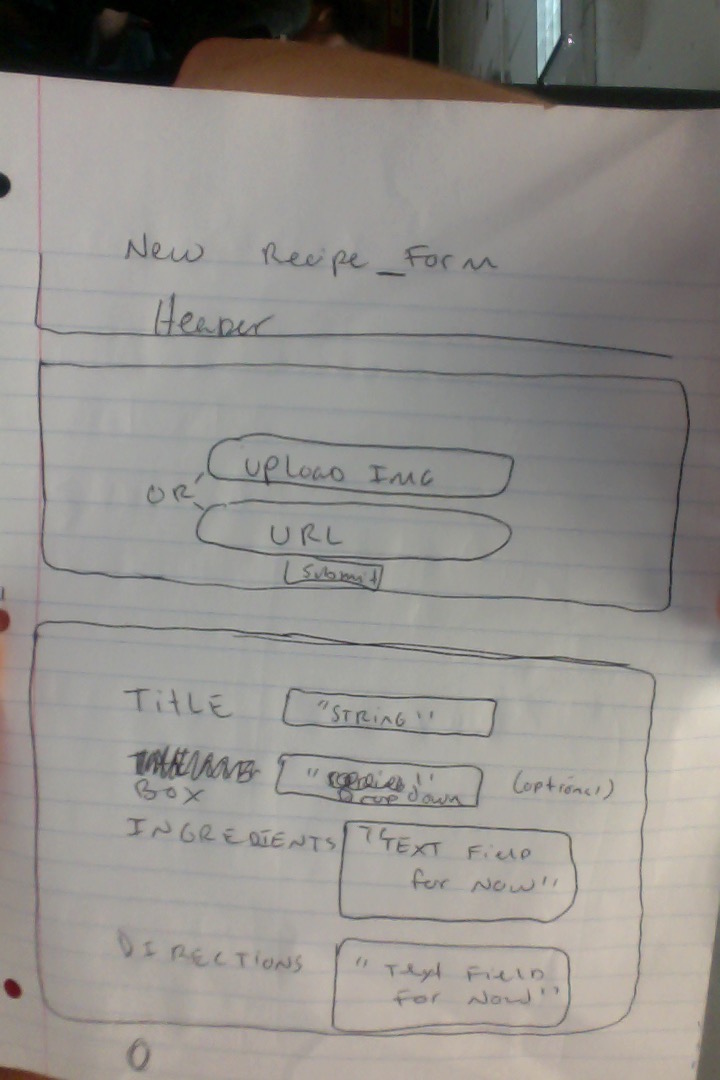 New Recipe_Form
Header
Upload Img
OR
URL
Submit
Title "STRING"
Box " " Drop down (optional)
INGREDIENTS "TEXT Field
for Now"
DIRECTIONS "Text Field
For Now"